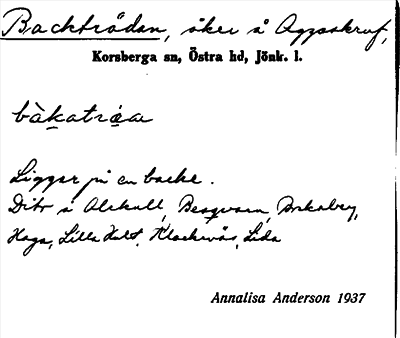 Backträdan, åker å Aggaskruf,
Korsberga sn, Östra hd, Jönk. l.
bàkatráa
Ligger på en backe.
Dito å Alskull, Bergvarn,
Haga, Lilla Hult, Klackenäs, Lida
Annalisa Anderson 1937